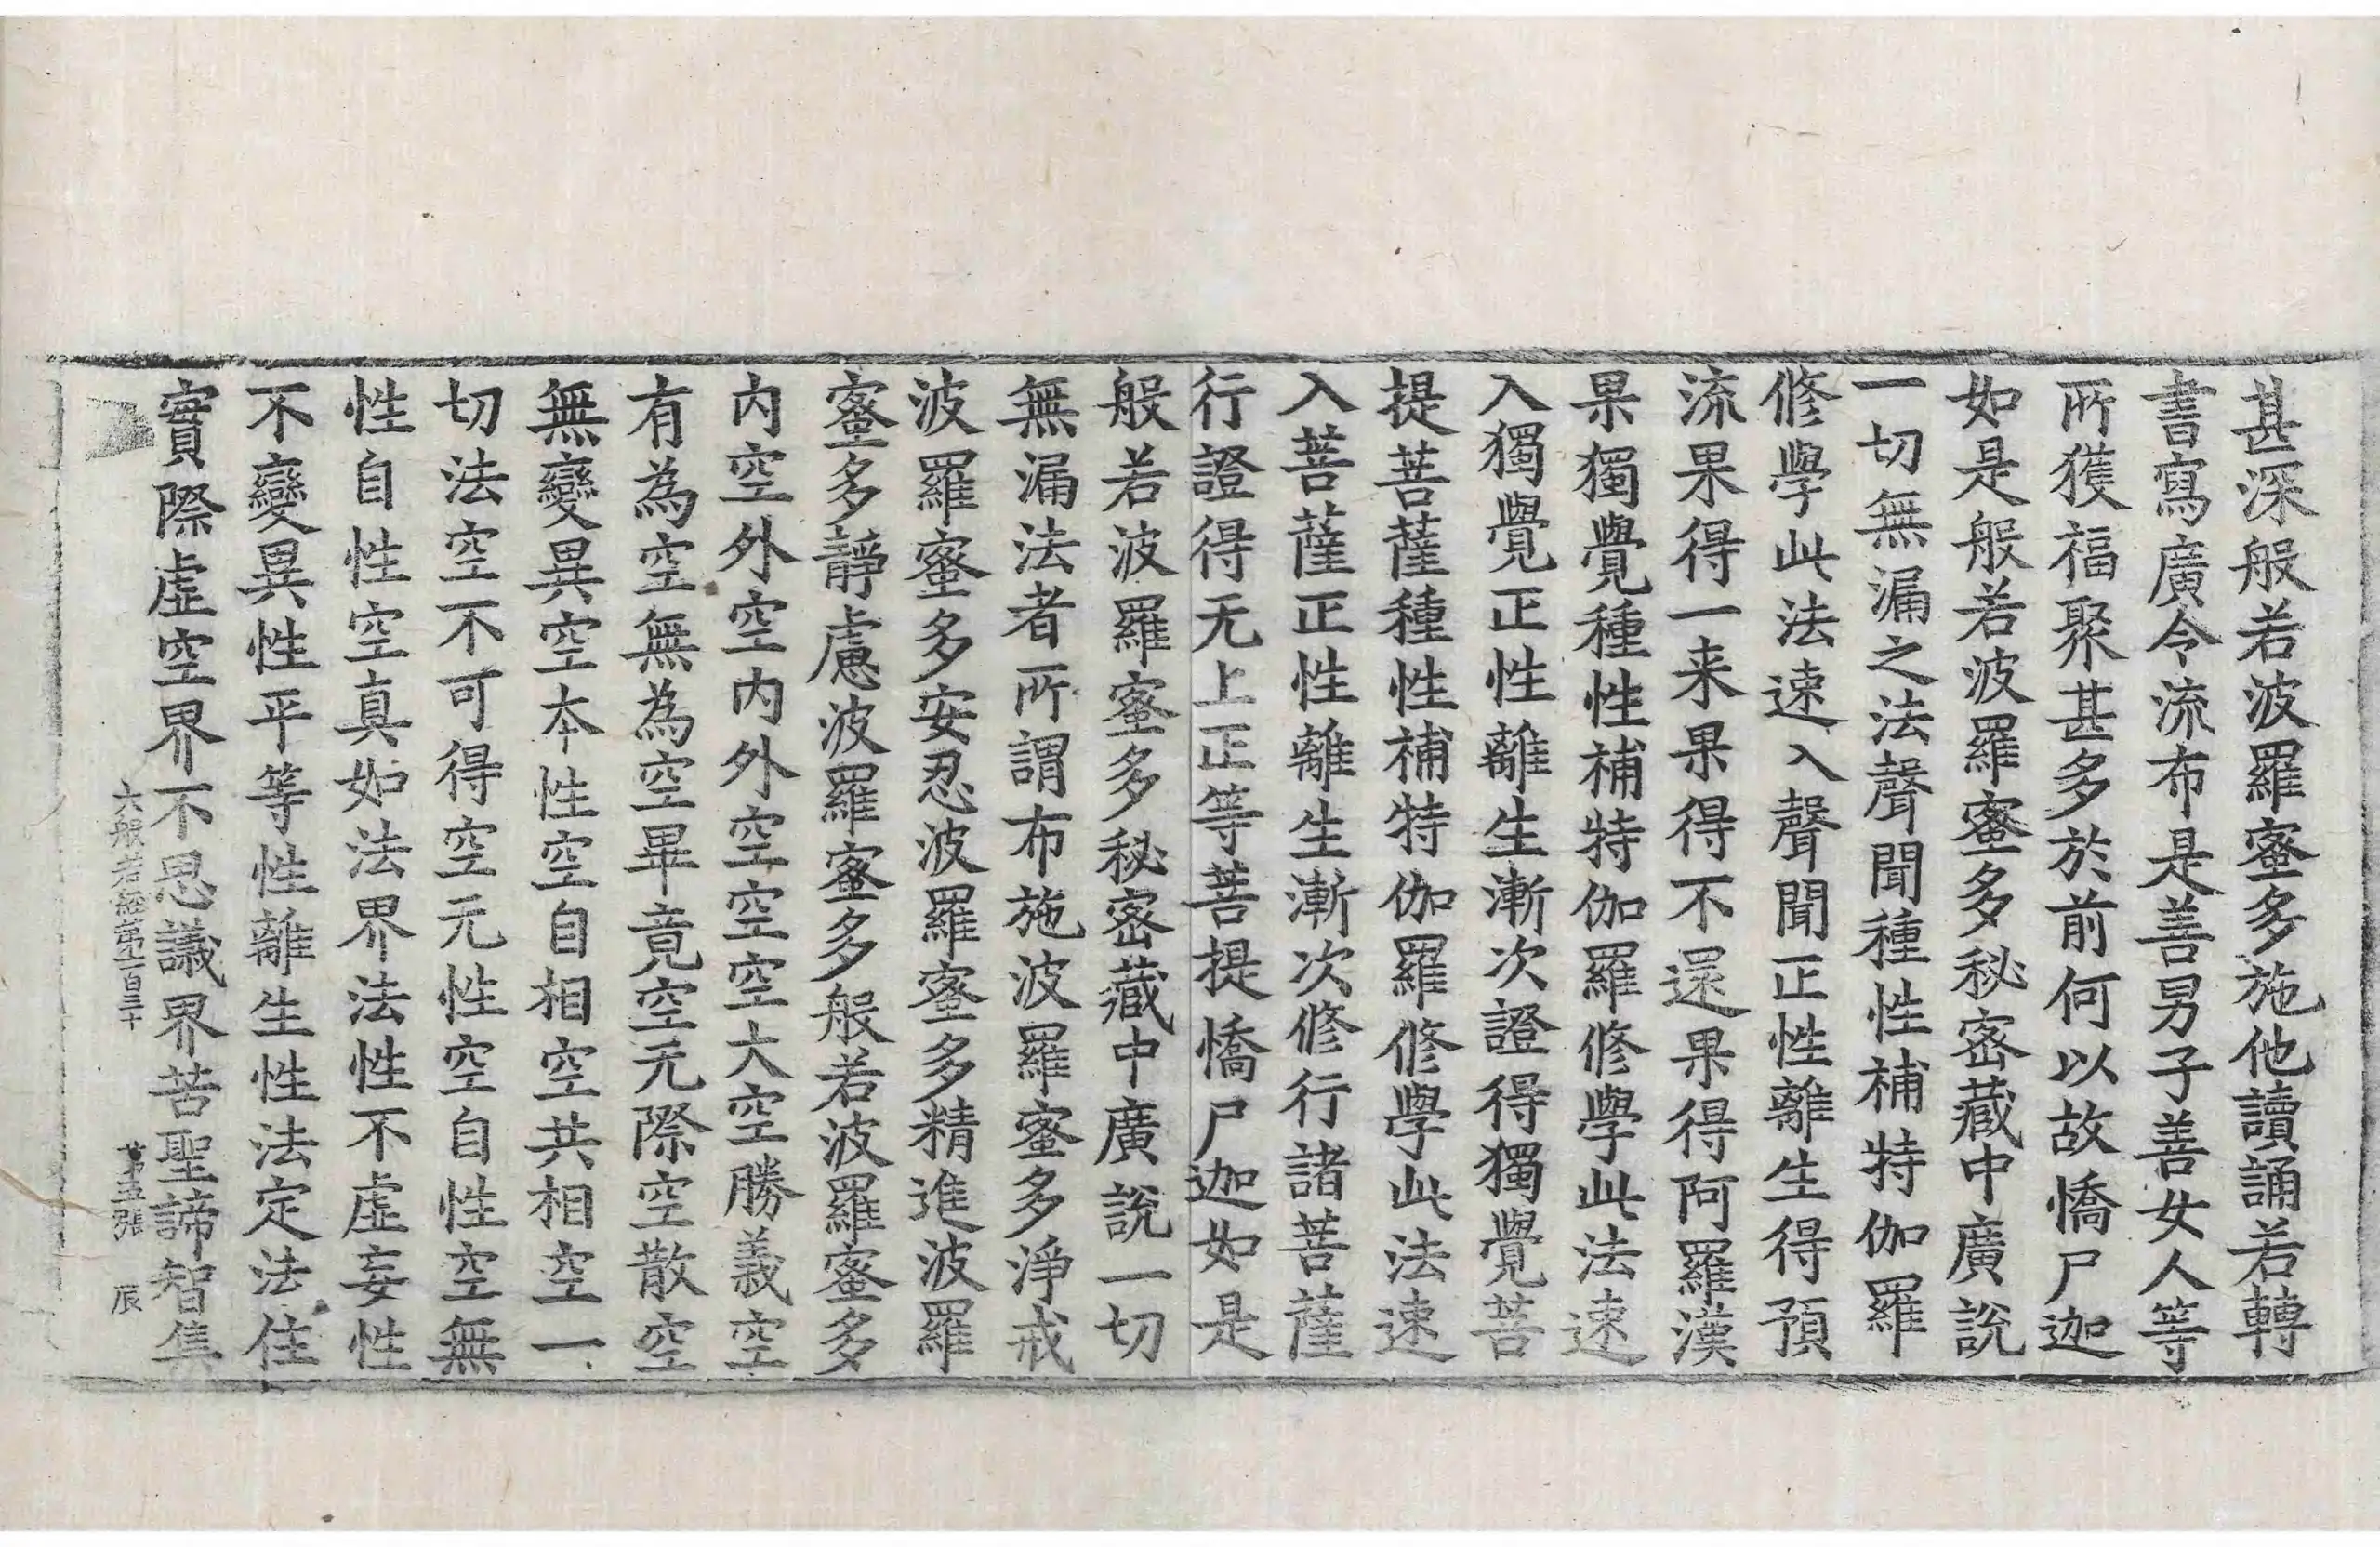 甚深般若波羅蜜多施他讀誦若轉
書寫廣令流布是善男子善女人等
所獲福聚甚多於前何以故憍尸迦
如是般若波羅蜜多秘密藏中廣說
一切無漏之法聲聞種性補特伽羅
修學此法速入聲聞正性離生得預
流果得一来果得不還果得阿羅漢
果獨覺種性補特伽羅修學此法速
入獨覺正性離生漸次證得獨覺菩
提菩薩種性補特伽羅修學此法速
入菩薩正性離生漸次修行諸菩薩
行證得无上正等菩提憍尸迦如是
般若波羅蜜多秘密藏中廣說一切
無漏法者所謂布施波羅蜜多淨戒
波羅蜜多安忍波羅蜜多精進波羅
蜜多靜慮波羅蜜多般若波羅蜜多
内空外空内外空空空大空勝義空
有為空無為空畢竟空无際空散空
無變異空本性空自相空共相空一
切法空不可得空无性空自性空無
性自性空真如法界法性不虛妄性
不變異性平等性離生性法定法住
實際虛空界不思議界苦聖諦智集
大般若經第一百三十 第五張 辰